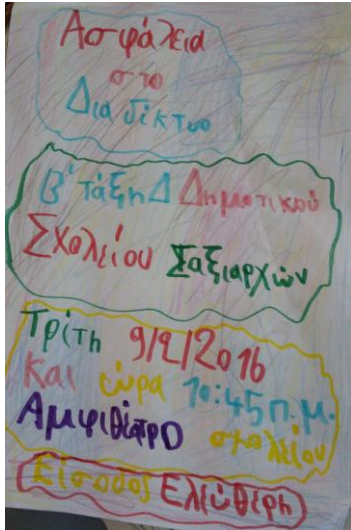 Ασφάλεια
στο
Διαδίκτυο
Β' τάξη Δ Δημοτικού
Σχολείου Ταξιαρχών
Τρίτη 9/2/2016
Και ώρα 10:45 π.μ.
Αμφιθέατρο σχολείου
Είσοδος Ελεύθερη